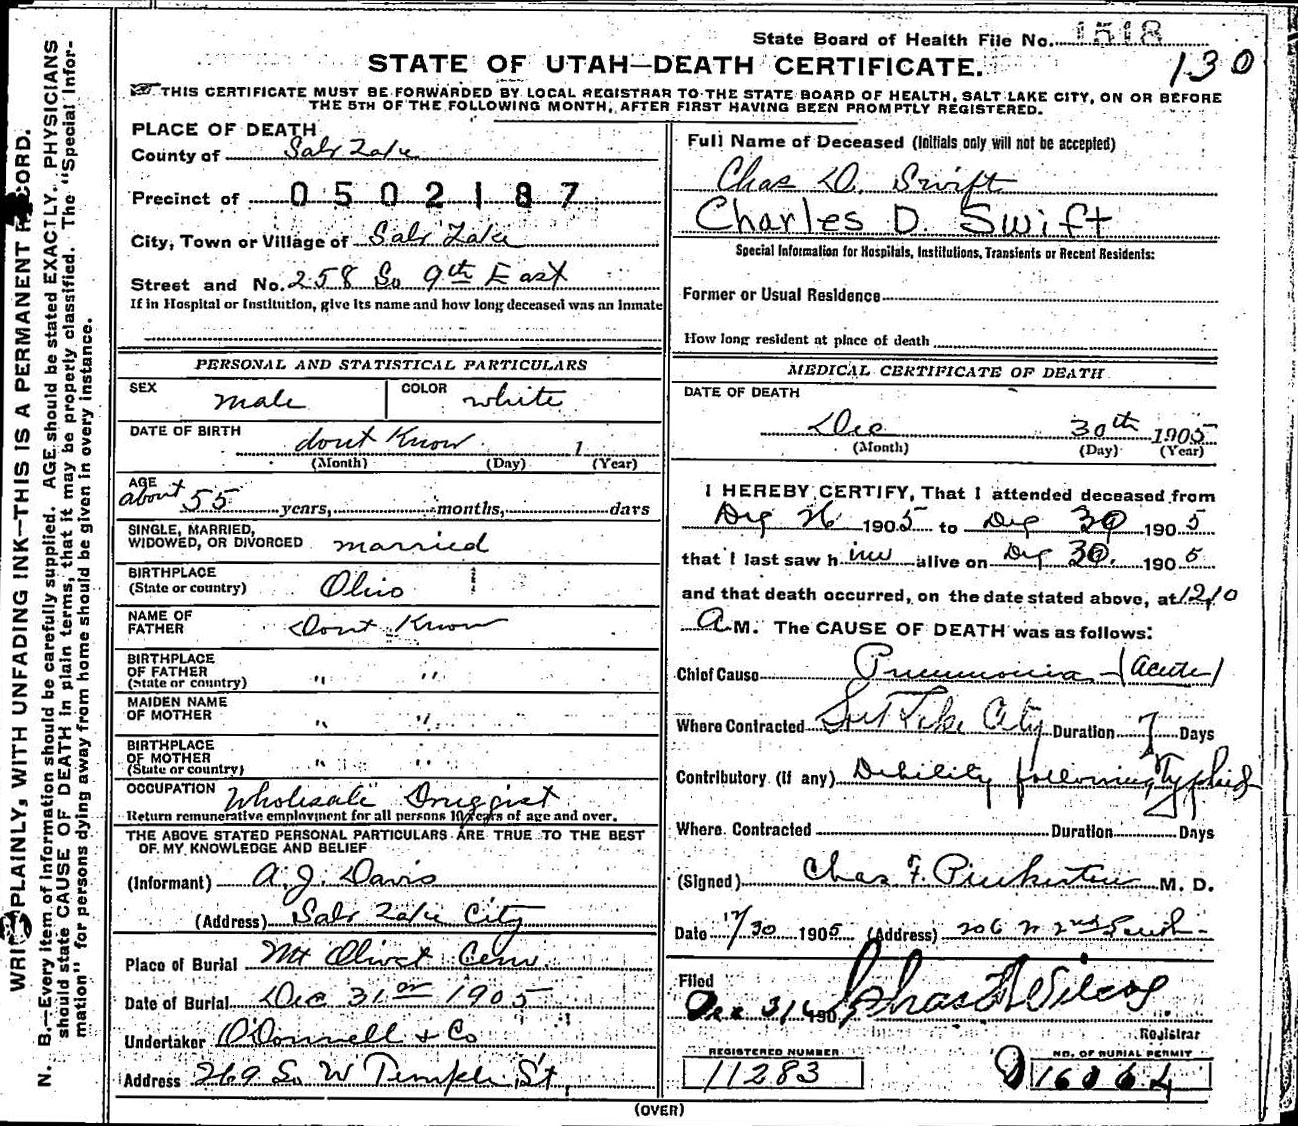 State Board of Health File No. 1518
130
STATE OF UTAH—DEATH CERTIFICATE.
THIS CERTIFICATE MUST BE FORWARDED BY LOCAL REGISTRAR TO THE STATE BOARD OF HEALTH, SALT LAKE CITY, ON OR BEFORE
THE 5TH OF THE FOLLOWING MONTH, AFTER FIRST HAVING BEEN PROMPTLY REGISTERED.
PLACE OF DEATH
County of Salt Lake
Precinct of 0502187
City, Town or Village of Salt Lake
Street and No. 258 So 9th East
If in Hospital or Institution, give its name and how long deceased was an inmate
PERSONAL AND STATISTICAL PARTICULARS
SEX male COLOR white
DATE OF BIRTH dont Know 1
(Month) (Day) (Year)
AGE
about 55 years, months, days
SINGLE, MARRIED,
WIDOWED, OR DIVORCED married
BIRTHPLACE
(State or country) Ohio
NAME OF
FATHER Dont Know
BIRTHPLACE
OF FATHER
(State or country) " "
MAIDEN NAME
OF MOTHER " "
BIRTHPLACE
OF MOTHER
(State or country) " "
OCCUPATION Wholesale Druggist
Return remunerative employment for all persons 10 years of age and over.
THE ABOVE STATED PERSONAL PARTICULARS ARE TRUE TO THE BEST
OF MY KNOWLEDGE AND BELIEF
(Informant) A. J. Davis
(Address) Salt Lake City
Place of Burial Mt Olivet Cem.
Date of Burial Dec 31 1905
Undertaker O'Donnell & Co
Address 269 So W Temple St,
Full Name of Deceased (Initials only will not be accepted)
Chas D. Swift
Charles D. Swift
Special Information for Hospitals, Institutions, Transients or Recent Residents:
Former or Usual Residence
How long resident at place of death
MEDICAL CERTIFICATE OF DEATH
DATE OF DEATH
Dec 30th 1905
(Month) (Day) (Year)
I HEREBY CERTIFY, That I attended deceased from
Dec 26 1905 to Dec 30 1905
that I last saw him alive on Dec 30. 1905
and that death occurred, on the date stated above, at 12.10
A.M. The CAUSE OF DEATH was as follows:
Chief Cause Pneumonia - (acute)
Where Contracted Salt Lake City Duration 7 Days
Contributory (If any) Debility following Typhoid
Where Contracted Duration Days
(Signed) Chas F. Pinkerton M. D.
Date 12/30 1905 (Address) 206 2nd South
Filed
Dec 31 190 Chas Wilcox
Registrar
REGISTERED NUMBER
11283
NO. OF BURIAL PERMIT
16064
(OVER)
WRITE PLAINLY, WITH UNFADING INK—THIS IS A PERMANENT RECORD.
N. B.—Every item of information should be carefully supplied. AGE should be stated EXACTLY. PHYSICIANS
should state CAUSE OF DEATH in plain terms, that it may be properly classified. The "Special Infor-
mation" for persons dying away from home should be given in every instance.